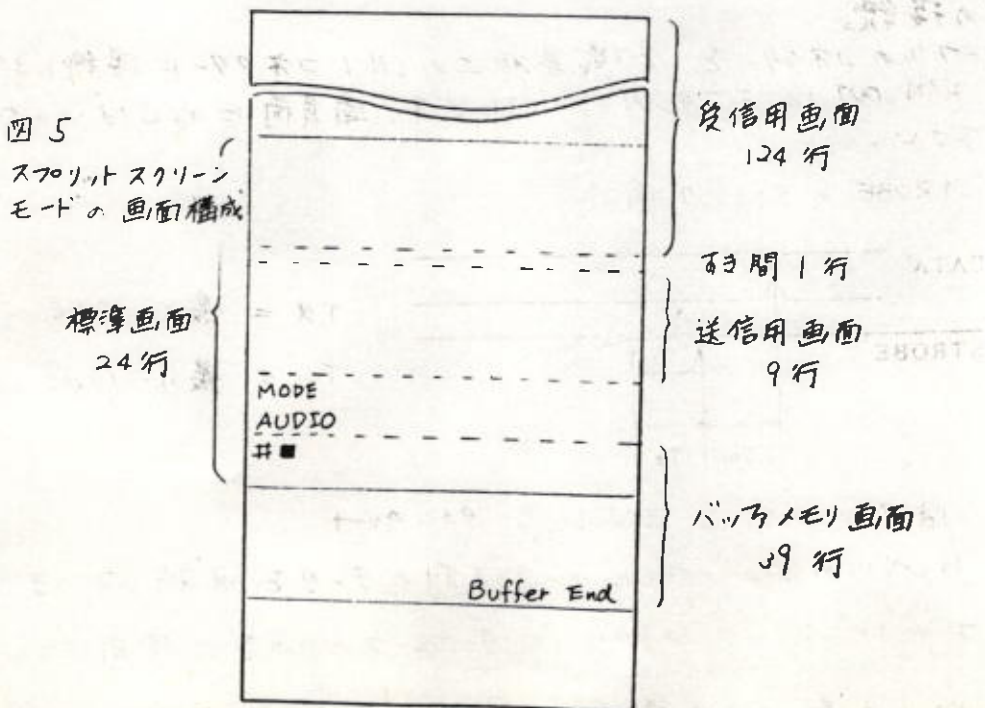 図 5
スプリット スクリーン
モードの 画面構成
標準画面
24行
MODE
AUDIO
#■
Buffer End
受信用画面
124行
すき間 1行
送信用画面
9行
バッファメモリ画面
39行